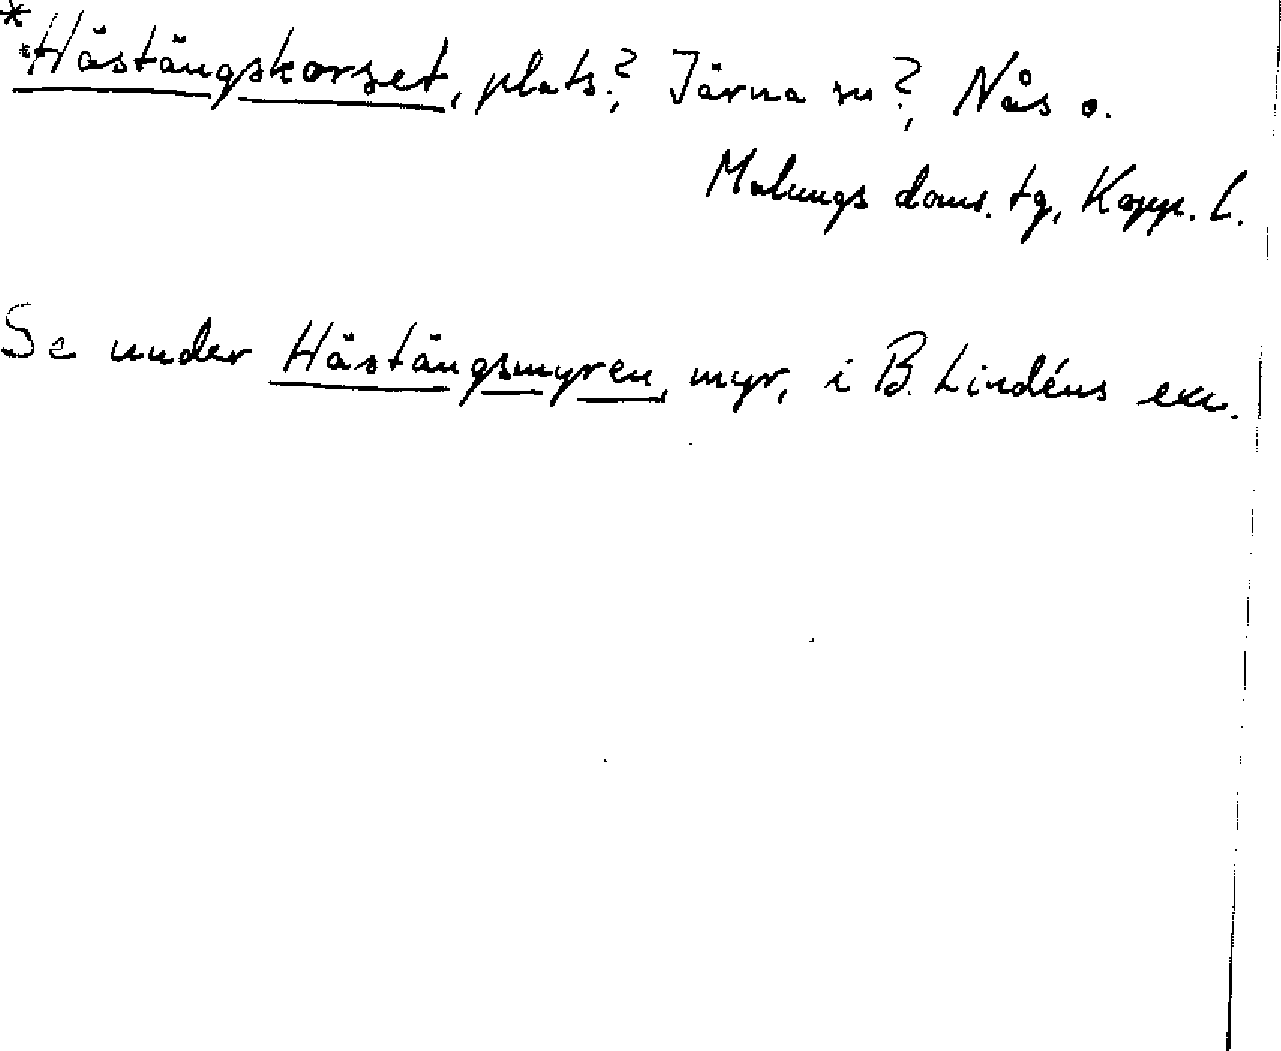 *
*Hästängskorset, plats?, Järna sn?, Nås o.
Malungs doms. tg, Kopp. l.
Se under Hästängsmyren, myr, i B. Lindéns exc.